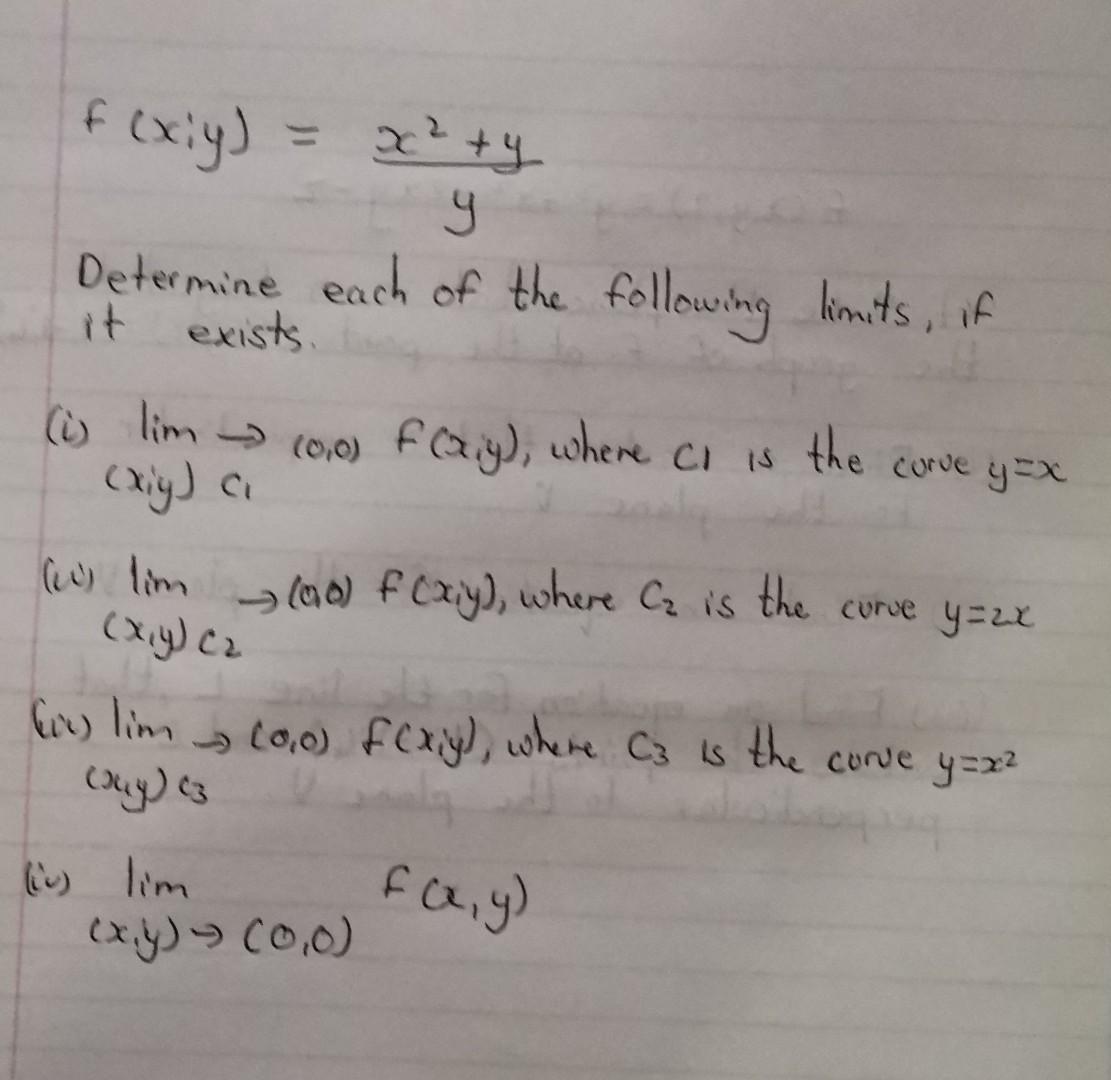 f(x;y) = x² + y
y
Determine each of the following limits, if
it exists.
(i) lim → (0,0) f(x,y), where C1 is the curve y=x
(x;y) C1
(ii) lim → (0,0) f(x,y), where C2 is the curve y=2x
(x,y) C2
(iii) lim → (0,0) f(x,y), where C3 is the curve y=x²
(x,y) C3
(iv) lim f(x,y)
(x,y) → (0,0)